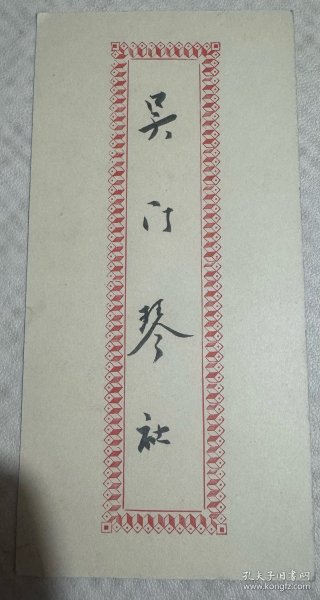 吴门琴社
孔夫子旧书网
www.kongfz.com